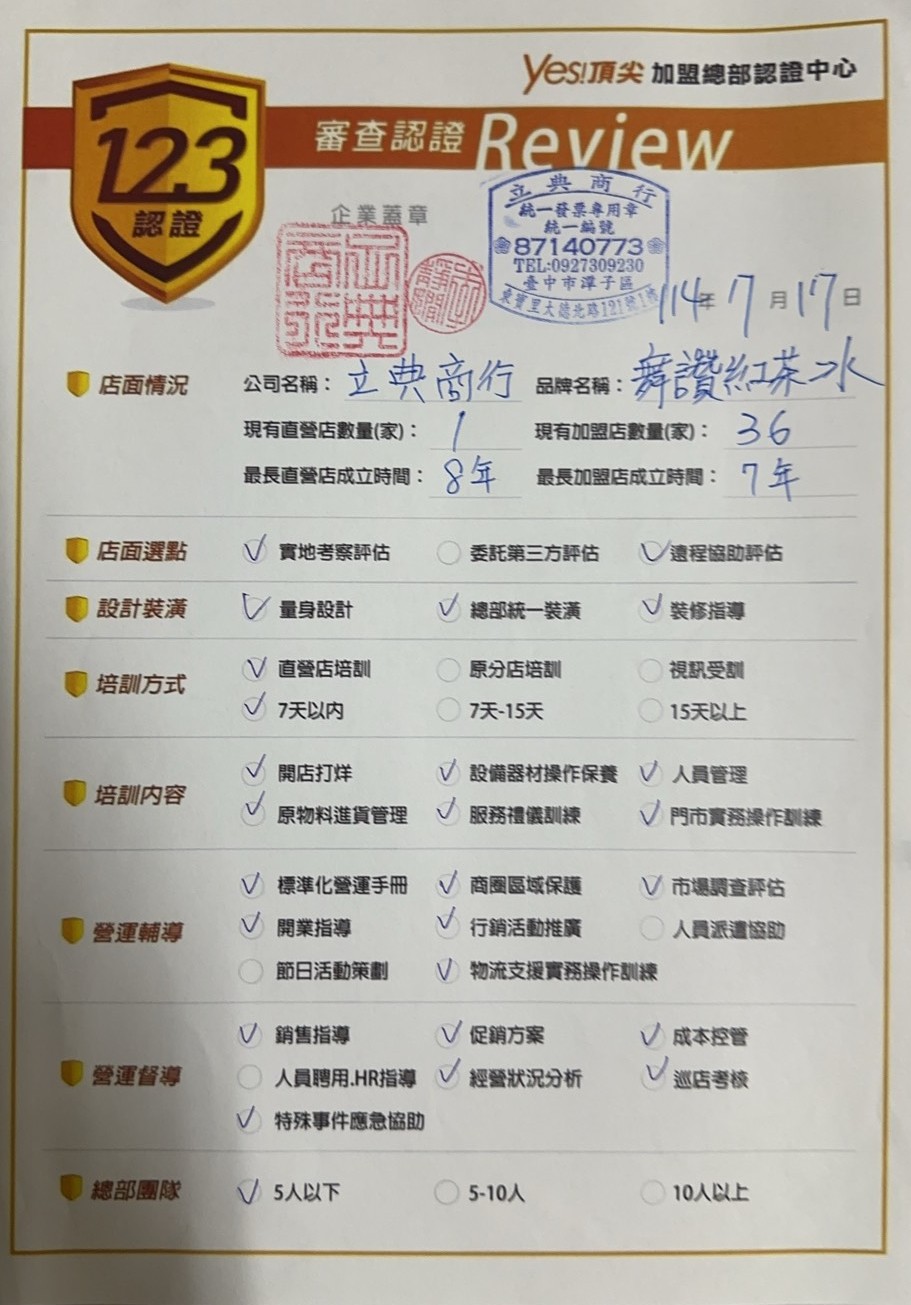 Yes!頂尖 加盟總部認證中心
123
認證
審查認證 Review
企業蓋章
立典商行
統一發票專用章
統一編號
87140773
TEL:0927309230
臺中市潭子區
東寶里大德北路121號1樓
立典
商行
114年7月17日
店面情況
公司名稱: 立典商行 品牌名稱: 舞讚紅茶冰
現有直營店數量(家): 1 現有加盟店數量(家): 36
最長直營店成立時間: 8年 最長加盟店成立時間: 7年
店面選點 ✓ 實地考察評估 ○ 委託第三方評估 ✓ 遠程協助評估
設計裝潢 ✓ 量身設計 ✓ 總部統一裝潢 ✓ 裝修指導
培訓方式 ✓ 直營店培訓 ○ 原分店培訓 ○ 視訊受訓
✓ 7天以內 ○ 7天-15天 ○ 15天以上
培訓內容 ✓ 開店打烊 ✓ 設備器材操作保養 ✓ 人員管理
✓ 原物料進貨管理 ✓ 服務禮儀訓練 ✓ 門市實務操作訓練
營運輔導 ✓ 標準化營運手冊 ✓ 商圈區域保護 ✓ 市場調查評估
✓ 開業指導 ✓ 行銷活動推廣 ○ 人員派遣協助
○ 節日活動策劃 ✓ 物流支援實務操作訓練
營運督導 ✓ 銷售指導 ✓ 促銷方案 ✓ 成本控管
○ 人員聘用.HR指導 ✓ 經營狀況分析 ✓ 巡店考核
✓ 特殊事件應急協助
總部團隊 ✓ 5人以下 ○ 5-10人 ○ 10人以上